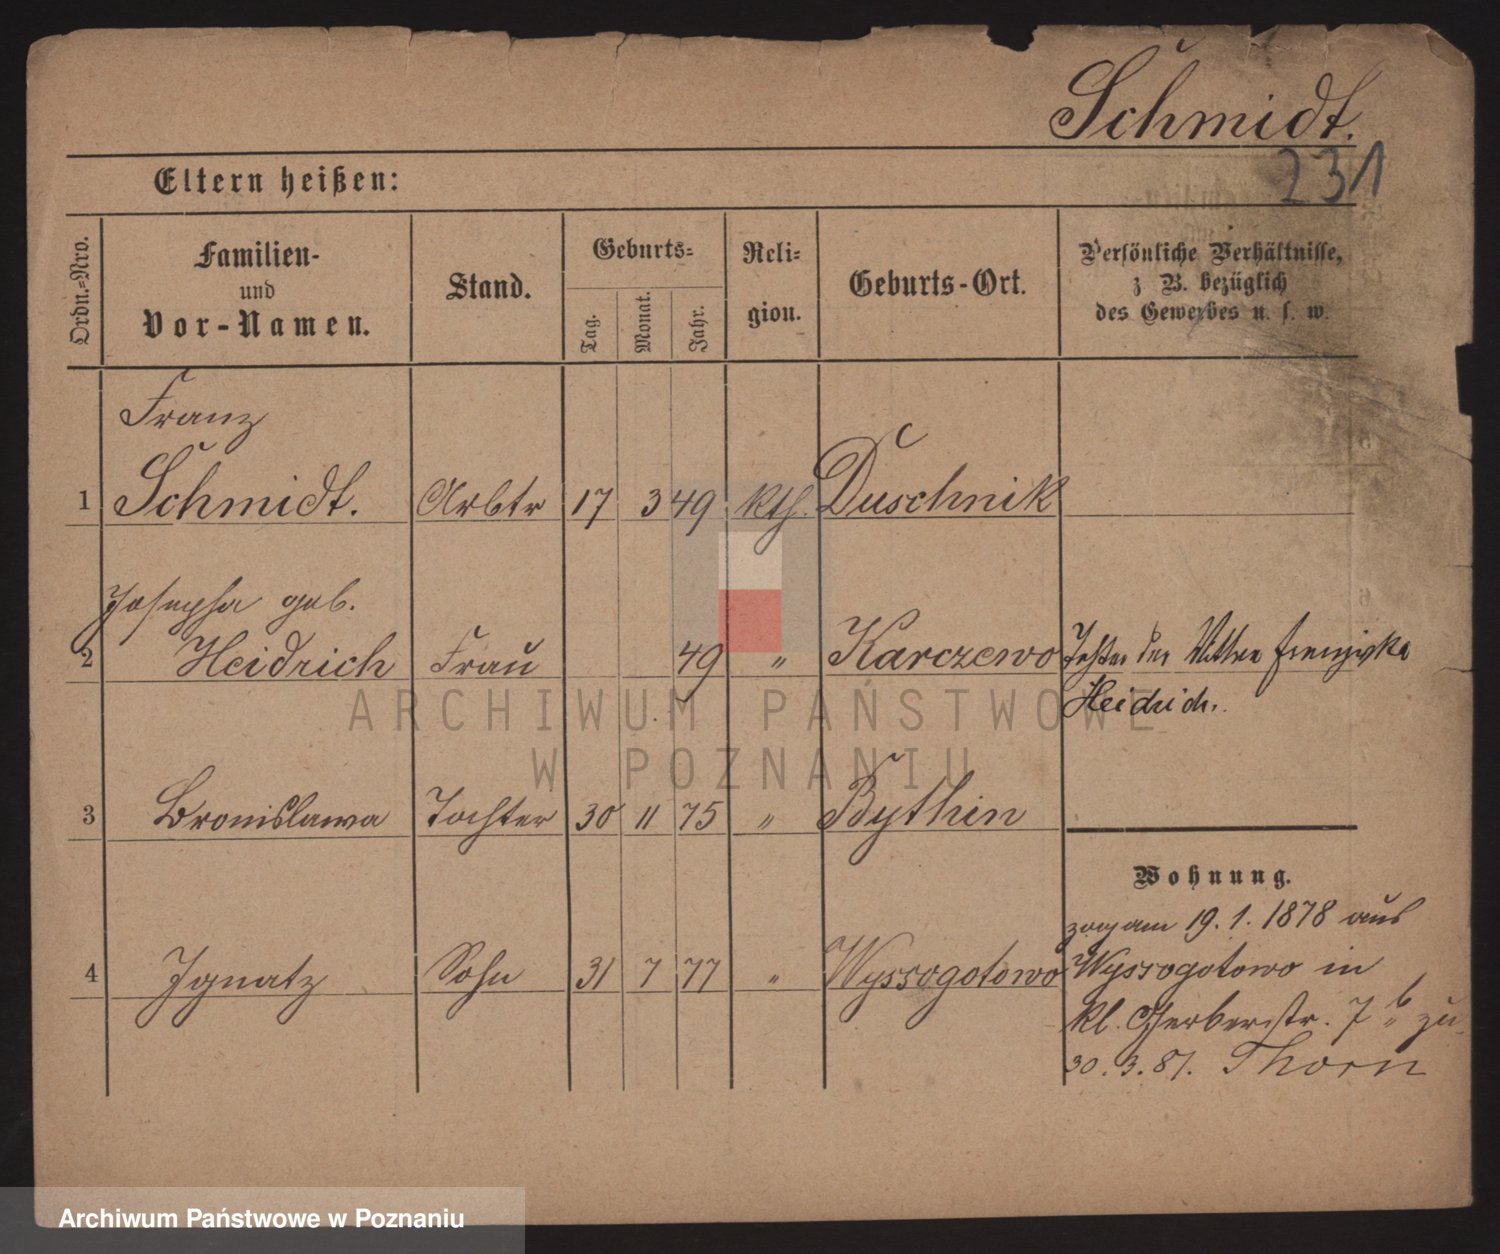 Schmidt.
231
Eltern heißen:
Ordn.-Nro.
Familien-
und
Vor-Namen.
Stand.
Geburts-
Tag.
Monat.
Jahr.
Reli-
gion.
Geburts-Ort.
Persönliche Verhältnisse,
z. B. bezüglich
des Gewerbes u. s. w.
Franz
1 Schmidt. Arbtr 17 3 49 kth. Duschnik
Josepha geb.
2 Heidrich Frau 49 " Karczewo der
Heidrich.
3 Bronislawa Tochter 30 11 75 " Bythin
Wohnung.
zog am 19. 1. 1878 aus
4 Ignatz Sohn 31 7 77 " Wyssogotowo Wyssogotowo in
kl. Gerberstr. 7 b zu
30. 3. 81. Thorn
ARCHIWUM PAŃSTWOWE
W POZNANIU
Archiwum Państwowe w Poznaniu